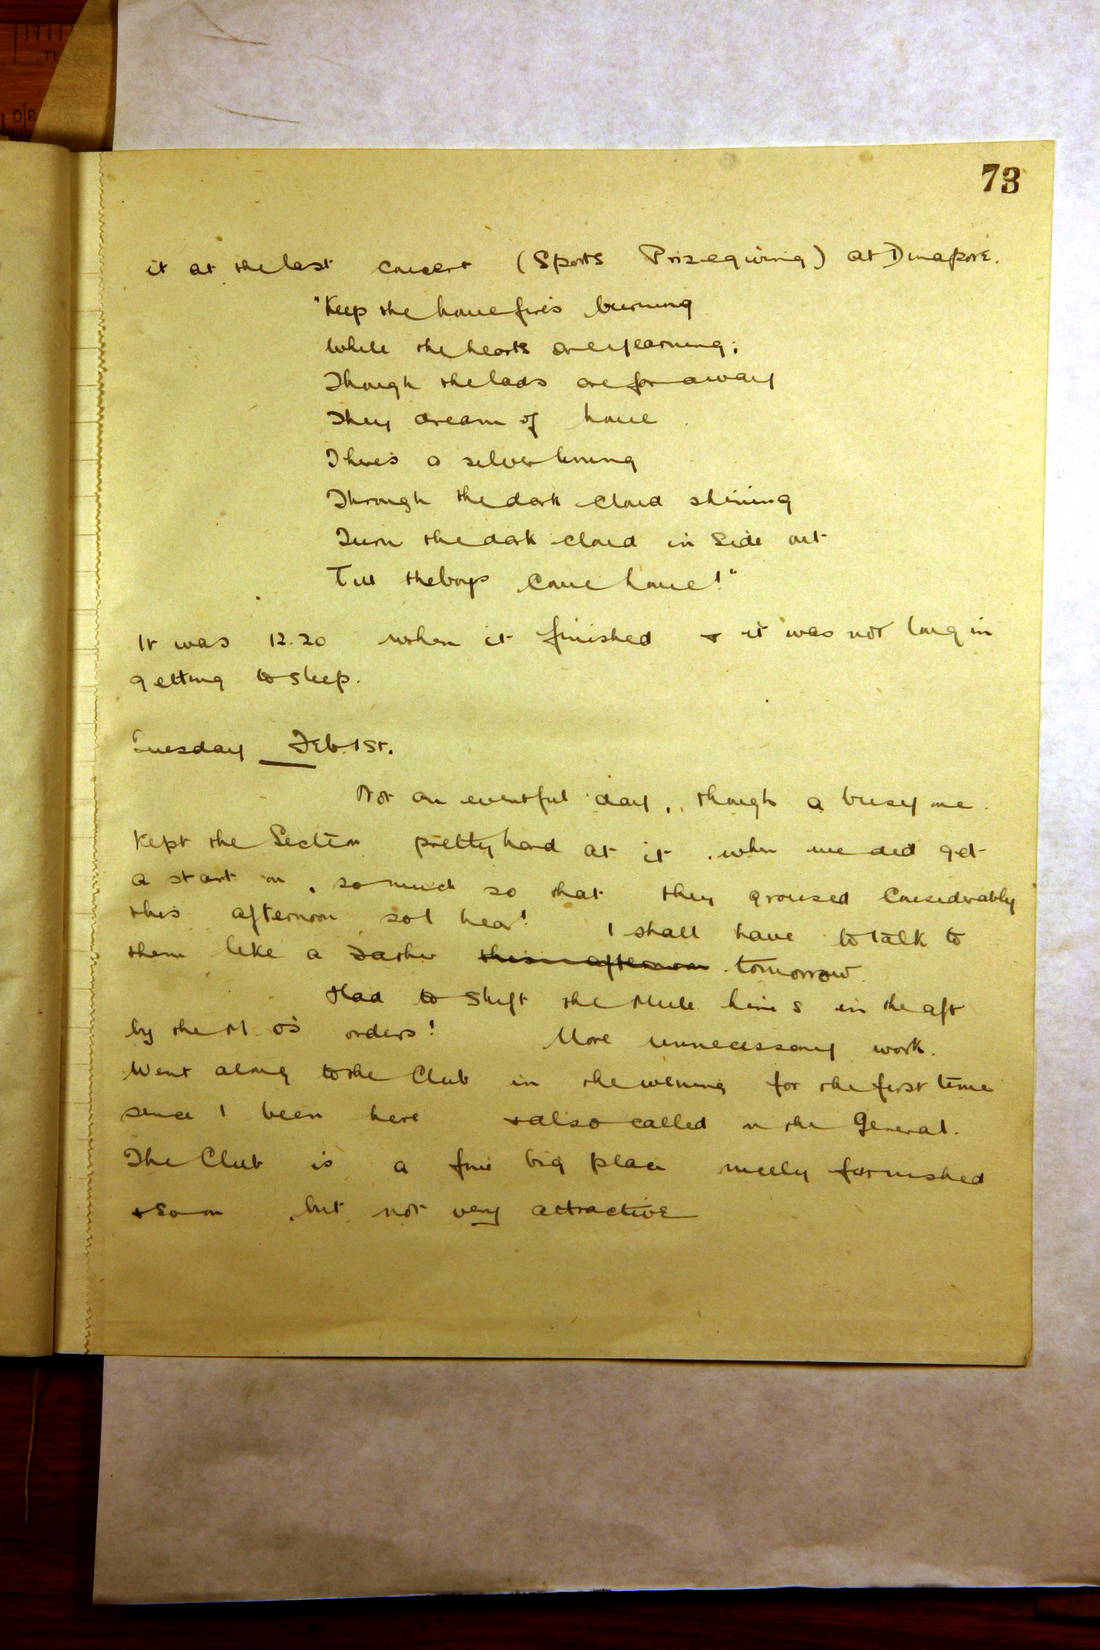 73
it at the last concert (Sports Prizegiving) at Dinapore.
"Keep the home fires burning
While the hearts are yearning;
Though the lads are far away
They dream of home
Theres a silver lining
Through the dark cloud shining
Turn the dark cloud in side out
Till the boys come home!"
It was 12.20 when it finished & it was not long in
getting to sleep.
Tuesday Feb. 1st.
Not an eventful day, though a busy one.
Kept the Section pretty hard at it when we did get
a start on, so much so that they groused considerably
this afternoon so I hear! I shall have to talk to
them like a Father this afternoon tomorrow.
Had to shift the Mule lines in the aft
by the M.O's orders! More unnecessary work.
Went along to the Club in the evening for the first time
since I been here & also called on the General.
The Club is a fine big place nicely furnished
& so on but not very attractive